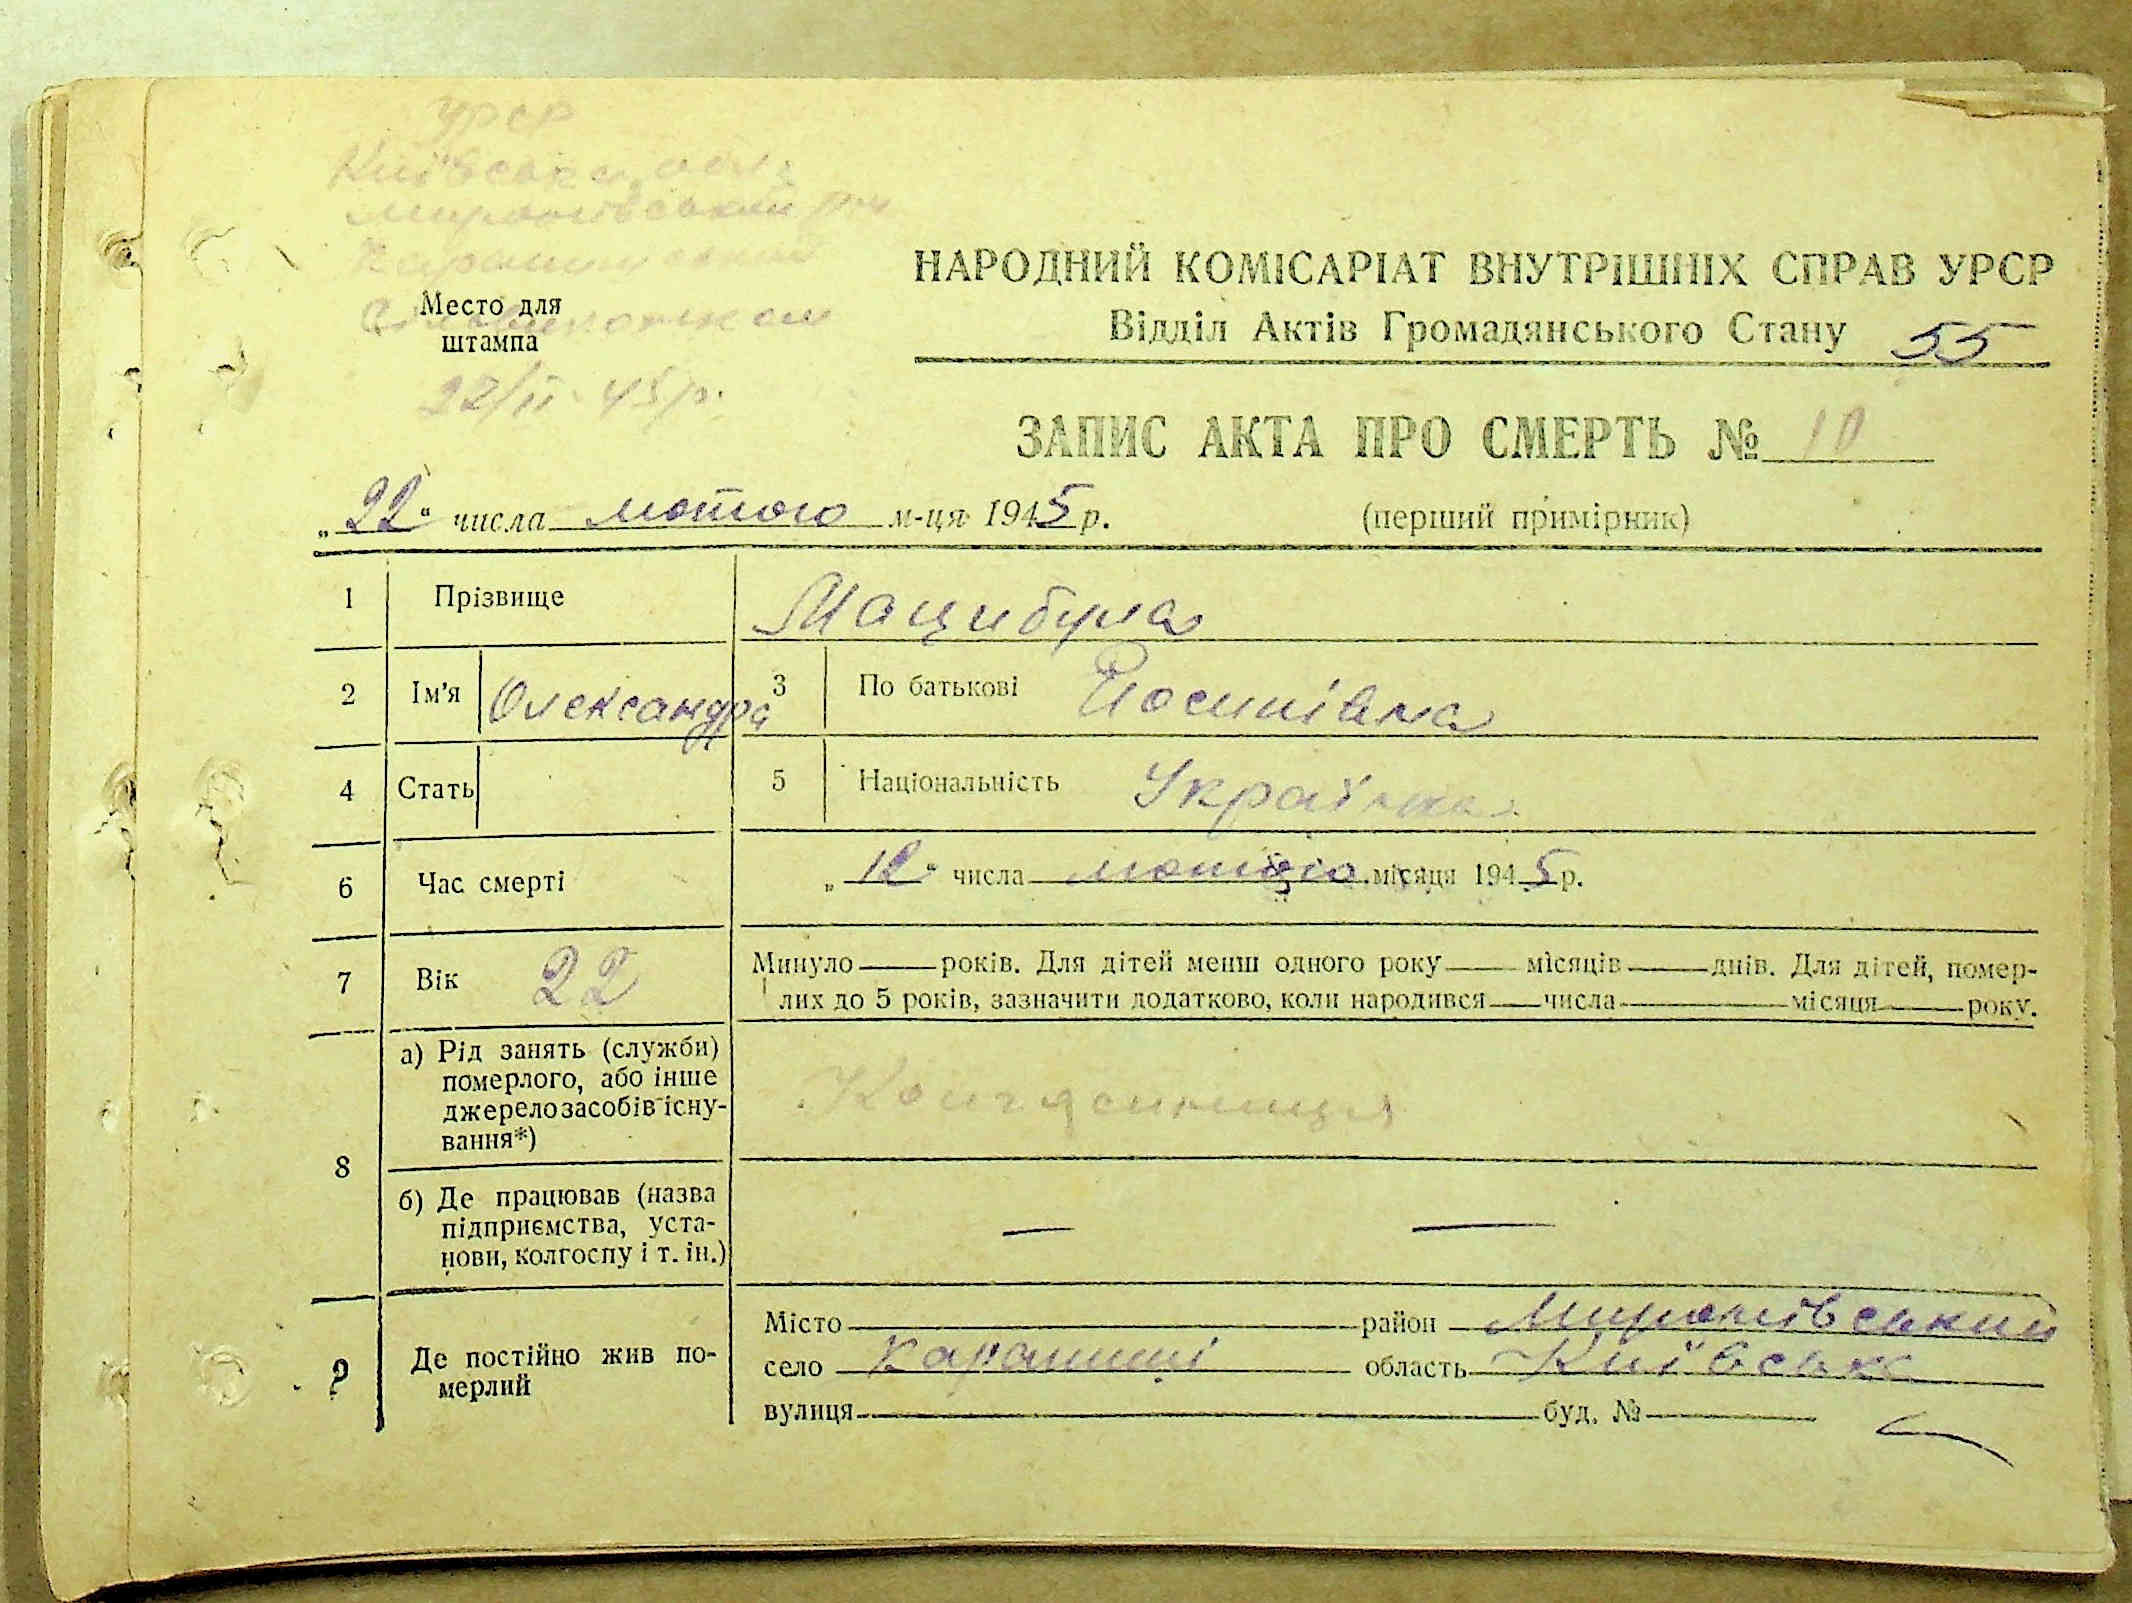 УРСР
Київська обл.
Миронівський р-н
Карапишська
Місто для
штампа
22/II 45 р.
НАРОДНИЙ КОМІСАРІАТ ВНУТРІШНІХ СПРАВ УРСР
Відділ Актів Громадянського Стану 55
ЗАПИС АКТА ПРО СМЕРТЬ № 10
„22“ числа лютого м-ця 1945 р.
(перший примірник)
1 Прізвище Мацибула
2 Ім'я Олександра 3 По батькові Йосипівна
4 Стать 5 Національність Українка
6 Час смерті „12“ числа лютого місяця 1945 р.
7 Вік 22 Минуло ____ років. Для дітей менш одного року ____ місяців ____ днів. Для дітей, помер-
лих до 5 років, зазначити додатково, коли народився ____ числа ____ місяця ____ року.
8 а) Рід занять (служби)
померлого, або інше
джерело засобів існу-
вання*)
б) Де працював (назва
підприємства, уста-
нови, колгоспу і т. ін.) — —
9 Де постійно жив по-
мерлий
Місто ____ район Миронівський
село Карапиші область Київськ
вулиця ____ буд. № ____